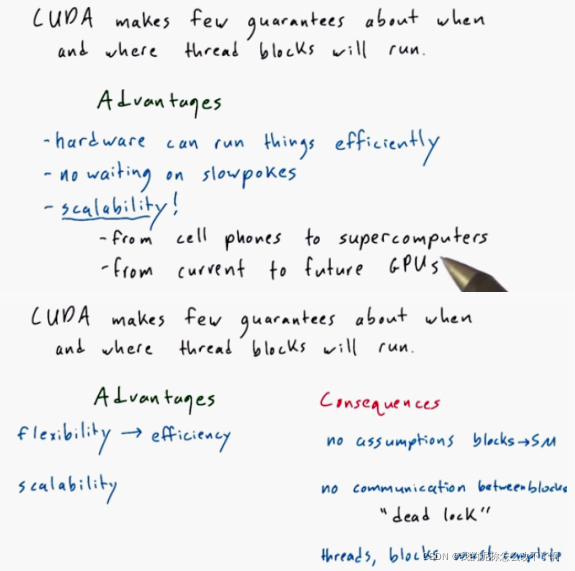 CUDA makes few guarantees about when
and where thread blocks will run.
Advantages
- hardware can run things efficiently
- no waiting on slowpokes
- scalability!
- from cell phones to supercomputers
- from current to future GPUs
CUDA makes few guarantees about when
and where thread blocks will run.
Advantages
flexibility → efficiency
scalability
Consequences
no assumptions blocks → SM
no communication between blocks
"dead lock"
threads, blocks must complete